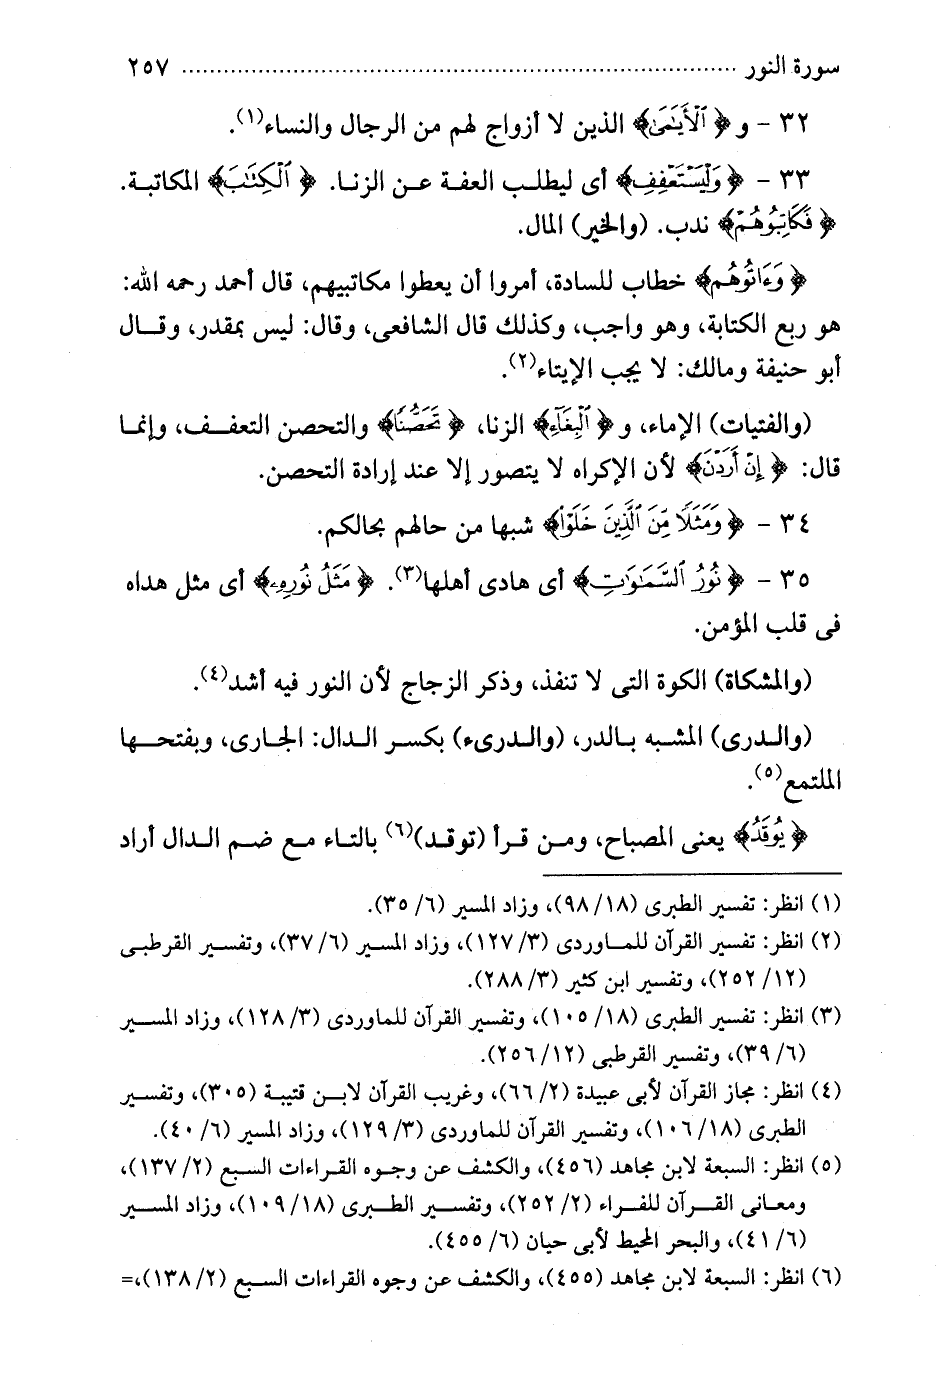 سورة النور ........................................................................ ٢٥٧
٣٢ - و ﴿ ٱلْأَيَٰمَىٰ﴾ الذين لا أزواج لهم من الرجال والنساء(١).
٣٣ - ﴿ وَلْيَسْتَعْفِفِ﴾ أى ليطلب العفة عن الزنا. ﴿ ٱلْكِتَٰبَ﴾ المكاتبة.
﴿ فَكَاتِبُوهُمْ﴾ ندب. (والخير) المال.
﴿ وَءَاتُوهُم﴾ خطاب للسادة، أمروا أن يعطوا مكاتبيهم، قال أحمد رحمه الله:
هو ربع الكتابة، وهو واجب، وكذلك قال الشافعى، وقال: ليس بمقدر، وقال
أبو حنيفة ومالك: لا يجب الإيتاء(٢).
(والفتيات) الإماء، و ﴿ ٱلْبِغَآءِ﴾ الزنا، ﴿ تَحَصُّنًا﴾ والتحصن التعفف، وإنما
قال: ﴿ إِنْ أَرَدْنَ﴾ لأن الإكراه لا يتصور إلا عند إرادة التحصن.
٣٤ - ﴿ وَمَثَلًا مِّنَ ٱلَّذِينَ خَلَوْا۟﴾ شبها من حالهم بحالكم.
٣٥ - ﴿ نُورُ ٱلسَّمَٰوَٰتِ﴾ أى هادى أهلها(٣). ﴿ مَثَلُ نُورِهِۦ﴾ أى مثل هداه
فى قلب المؤمن.
(والمشكاة) الكوة التى لا تنفذ، وذكر الزجاج لأن النور فيه أشد(٤).
(والدرى) المشبه بالدر، (والدرىء) بكسر الدال: الجارى، وبفتحها
الملتمع(٥).
﴿ يُوقَدُ﴾ يعنى المصباح، ومن قرأ (توقد)(٦) بالتاء مع ضم الدال أراد
(١) انظر: تفسير الطبرى (٩٨/١٨)، وزاد المسير (٣٥/٦).
(٢) انظر: تفسير القرآن للماوردى (١٢٧/٣)، وزاد المسير (٣٧/٦)، وتفسير القرطبى
(٢٥٢/١٢)، وتفسير ابن كثير (٢٨٨/٣).
(٣) انظر: تفسير الطبرى (١٠٥/١٨)، وتفسير القرآن للماوردى (١٢٨/٣)، وزاد المسير
(٣٩/٦)، وتفسير القرطبى (٢٥٦/١٢).
(٤) انظر: مجاز القرآن لأبى عبيدة (٦٦/٢)، وغريب القرآن لابن قتيبة (٣٠٥)، وتفسير
الطبرى (١٠٦/١٨)، وتفسير القرآن للماوردى (١٢٩/٣)، وزاد المسير (٤٠/٦).
(٥) انظر: السبعة لابن مجاهد (٤٥٦)، والكشف عن وجوه القراءات السبع (١٣٧/٢)،
ومعانى القرآن للفراء (٢٥٢/٢)، وتفسير الطبرى (١٠٩/١٨)، وزاد المسير
(٤١/٦)، والبحر المحيط لأبى حيان (٤٥٥/٦).
(٦) انظر: السبعة لابن مجاهد (٤٥٥)، والكشف عن وجوه القراءات السبع (١٣٨/٢)،=